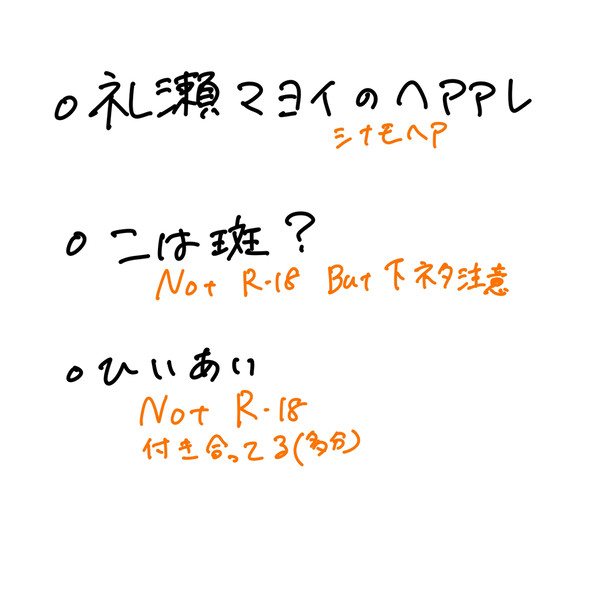 ○礼瀬マヨイのヘアアレ
シナモヘア
○こは斑?
Not R-18 But 下ネタ注意
○ひいあい
Not R-18
付き合ってる(多分)